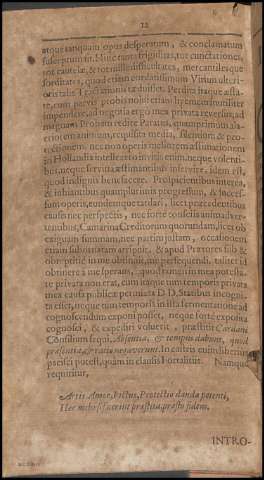 12
atque tanquam opus desperatum, & conclamatum
susceptum sit. Hinc tanta frigiditas, tot cunctationes,
tot cautelæ, & tot mille difficultates, mercantulesque
sorditates, quod etiam cordatissimum Virum ulteri-
oris talis Tractationis tæduisset. Perdita itaque æsta-
te, cum parvis probis nolui etiam hyemem inutiliter
impendere, ad negotia ergo mea privata reversus, ad
magnam Probam redire Paratus, quamprimum
animum, requisita media, silentium & pro-
nec non operis melioremæstimationem
in Hollandia intellexero invitis enim, neque volenti-
bus, neque servitia æstimantibus inservire, idem est,
quod indignis benefacere. Palpationibus interea,
& inhiantibus quamplurimis progressum, & succes-
sum operis, eundemque tardari, licet præcedentibus
causis nec perspectis, nec forte consciis animadver-
tentibus, Camarina Creditorum quorundam, licet ob
exiguam summam, nec partim justam, occasionem
etiam subinstantiam arripuit, & apud Prætores sub &
obreptitiè in me obtinuit, me persequendi, taliter in
obtinere a me sperans, quod tamen in mea potesta-
te privata non erat, cum itaque tum temporis privata
mea causa publicè permixta D.D. Statibus incogni-
ta esset, neque tum temporis in ista fermentatione ad
cognoscendum exponi posset, neque forte exposita
cognosci, & expediri voluerit, præstitit Cardani
Consilium sequi, Absentia, & tempus dabunt, quod
præsentia, & ratio negaverunt. In castris enim liberius
piscisci potest, quàm in clausis Portalitiis. Namque
requiritur,
Artis Amor, Victus, Protectio danda petenti,
Hæc mihi si fuerint præstita, præsto fidem.
INTRO-